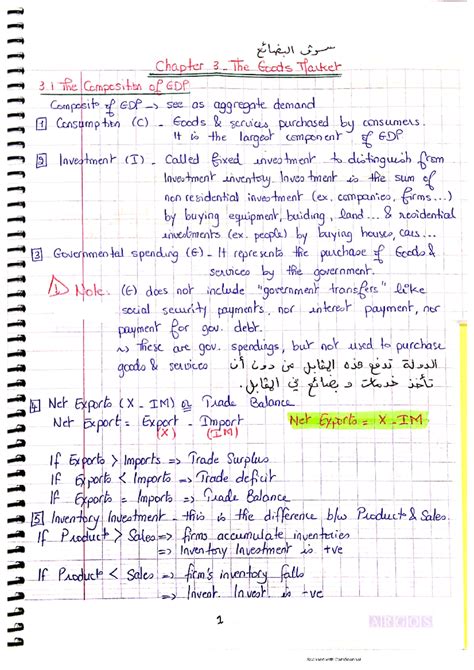 سوق البضائع
Chapter 3_ The Goods Market
3.1 The Composition of GDP
Composito of GDP → see as aggregate demand
1 Consumption (C) - Goods & services purchased by consumers.
It is the largest component of GDP
2 Investment (I) - Called fixed investment to distinguish from
Investment inventory. Investment is the sum of
non residential investment (ex. companies, firms...)
by buying equipment, buiding, land... & residential
investments (ex. people) by buying houses, cars...
3 Governmental spending (G) - It represents the purchase of Goods &
services by the government.
Note. (G) does not include "government transfers" like
social security payments, nor interest payment, nor
payment for gov. debt.
→ these are gov. spendings, but not used to purchase
goods & services الدولة تدفع هذه المقابل من دون أن
تأخذ خدمات و بضائع في المقابل.
4 Net Exports (X - IM) or Trade Balance
Net Export = Export - Import Net Exports = X - IM
(X) (IM)
If Exports > Imports => Trade Surplus
If Exports < Imports => Trade deficit
If Exports = Imports => Trade Balance
5 Inventory Investment - this is the difference b/w Product & Sales.
If Product > Sales => firms accumulate inventories
=> Inventory Investment is +ve
If Product < Sales => firm's inventory falls
=> Invest. Invest. is +ve
1
ARGOS
Scanned with CamScanner